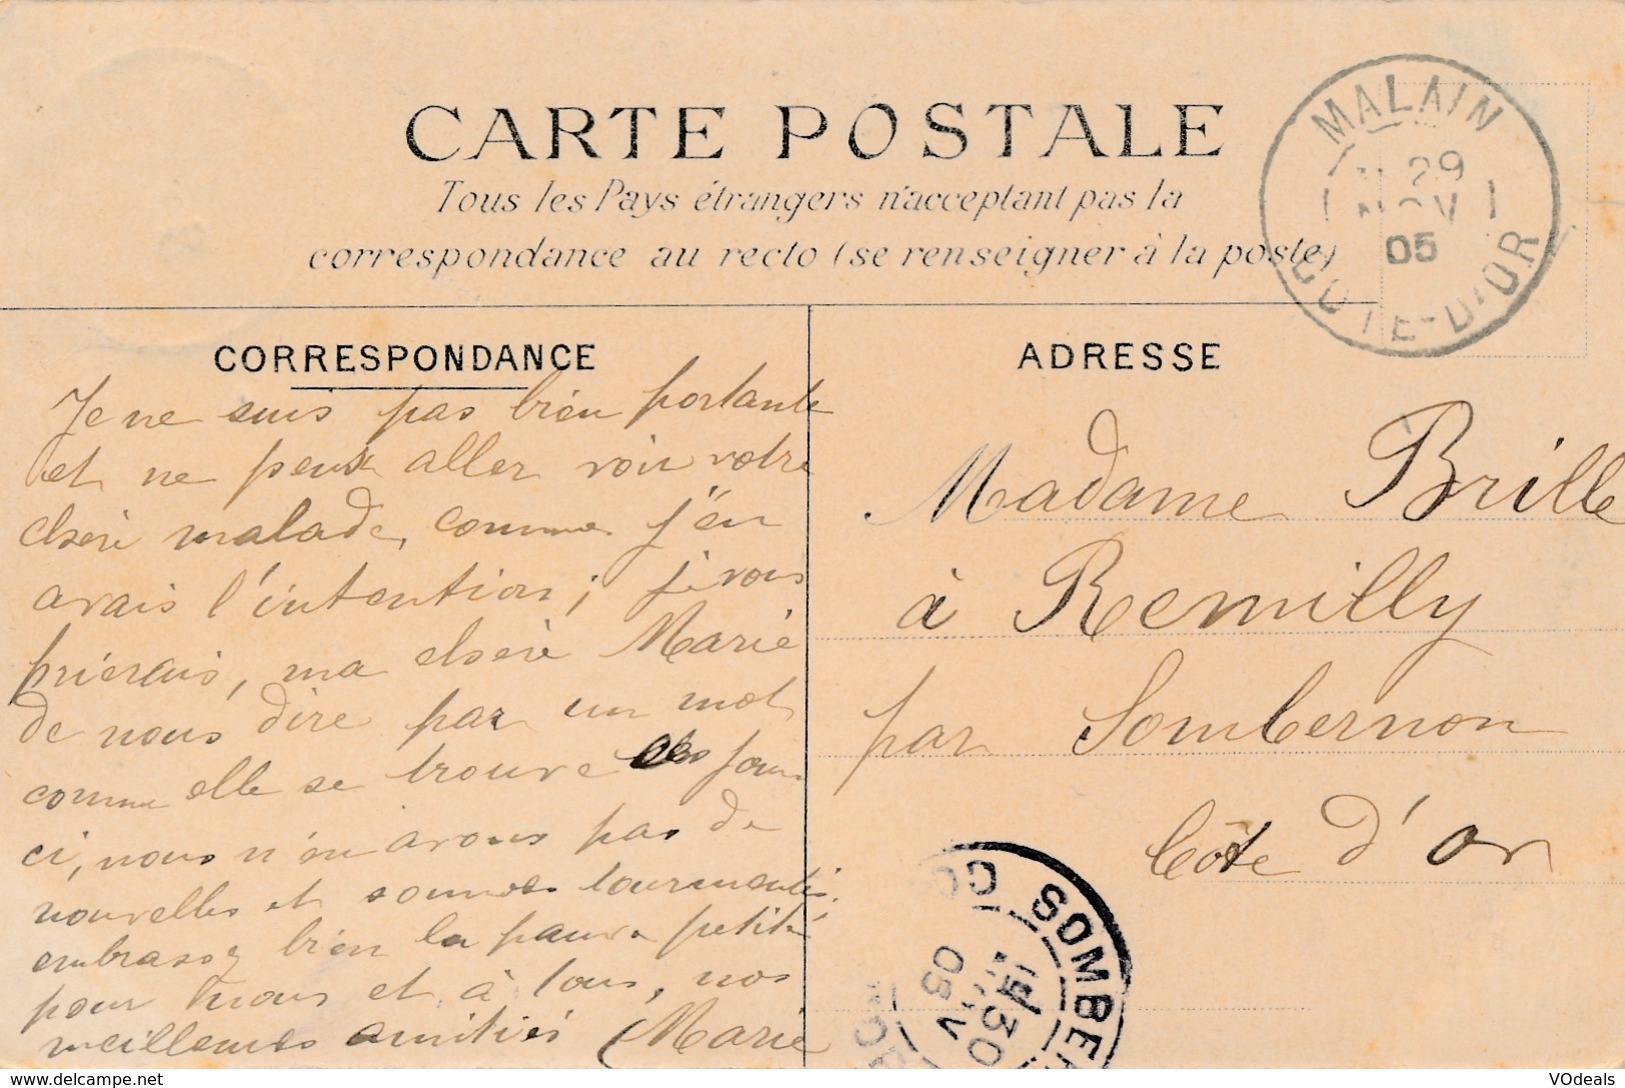 CARTE POSTALE
Tous les Pays étrangers n'acceptant pas la
correspondance au recto (se renseigner à la poste)
MALAIN
29
NOV
05
COTE-D'OR
CORRESPONDANCE
Je ne suis pas bien portante
et ne peux aller voir votre
chère malade, comme j'en
avais l'intention; je vous
prierais, ma chère Marie
de nous dire par un mot
comme elle se trouve ces jours
ci, nous n'en avons pas de
nouvelles et sommes tourmentés;
embrassez bien la pauvre petite
pour nous et à tous, nos
meilleures amitiés Marie
ADRESSE
Madame Brille
à Remilly
par Sombernon
Côte d'or
SOMBER
30
05
www.delcampe.net
VOdeals